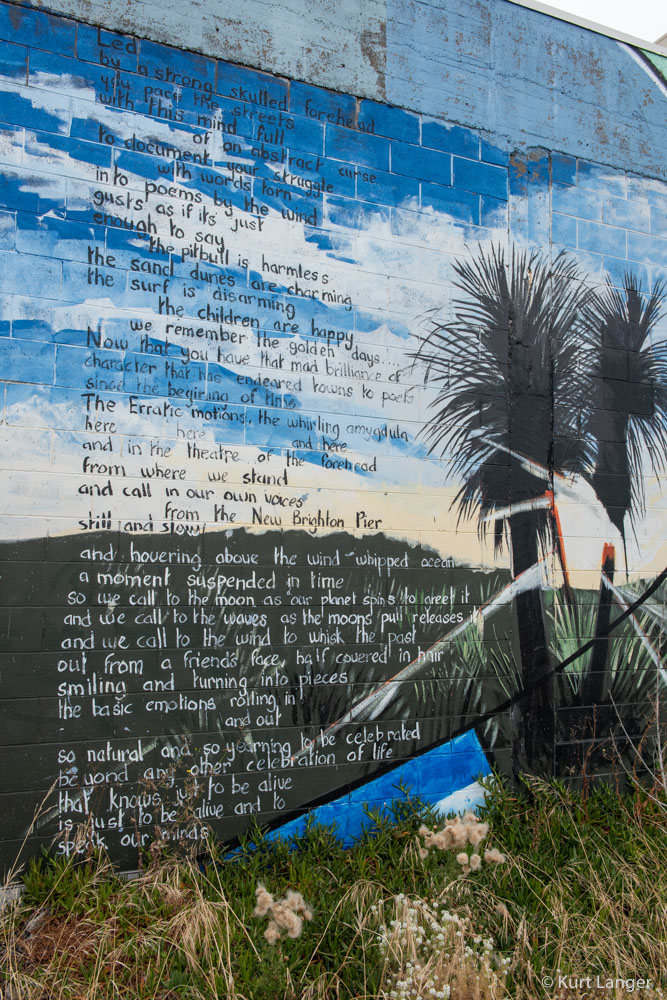 Led
by a strong skulled forehead
you pact the streets
with this mind full
of an abstract curse
to document your struggle
with words torn
into poems by the wind
gusts as if its just
enough to say
the pitbull is harmless
the sand dunes are charming
the surf is disarming
the children are happy
we remember the golden days...
Now that you have that mad brilliance of
character that has endeared towns to poets
since the begining of time
The Erratic motions, the whirling amygdula
here here and here
and in the theatre of the forehead
from where we stand
and call in our own voices
from the New Brighton Pier
still and slow
and hovering above the wind-whipped ocean
a moment suspended in time
so we call to the moon as our planet spins to greet it
and we call to the waves as the moons pull releases it
and we call to the wind to whisk the past
out from a friends face, half covered in hair
smiling and turning into pieces
the basic emotions rolling in
and out
so natural and so yearning to be celebrated
beyond any other celebration of life
that knows just to be alive
is just to be alive and to
speak our minds
© Kurt Langer